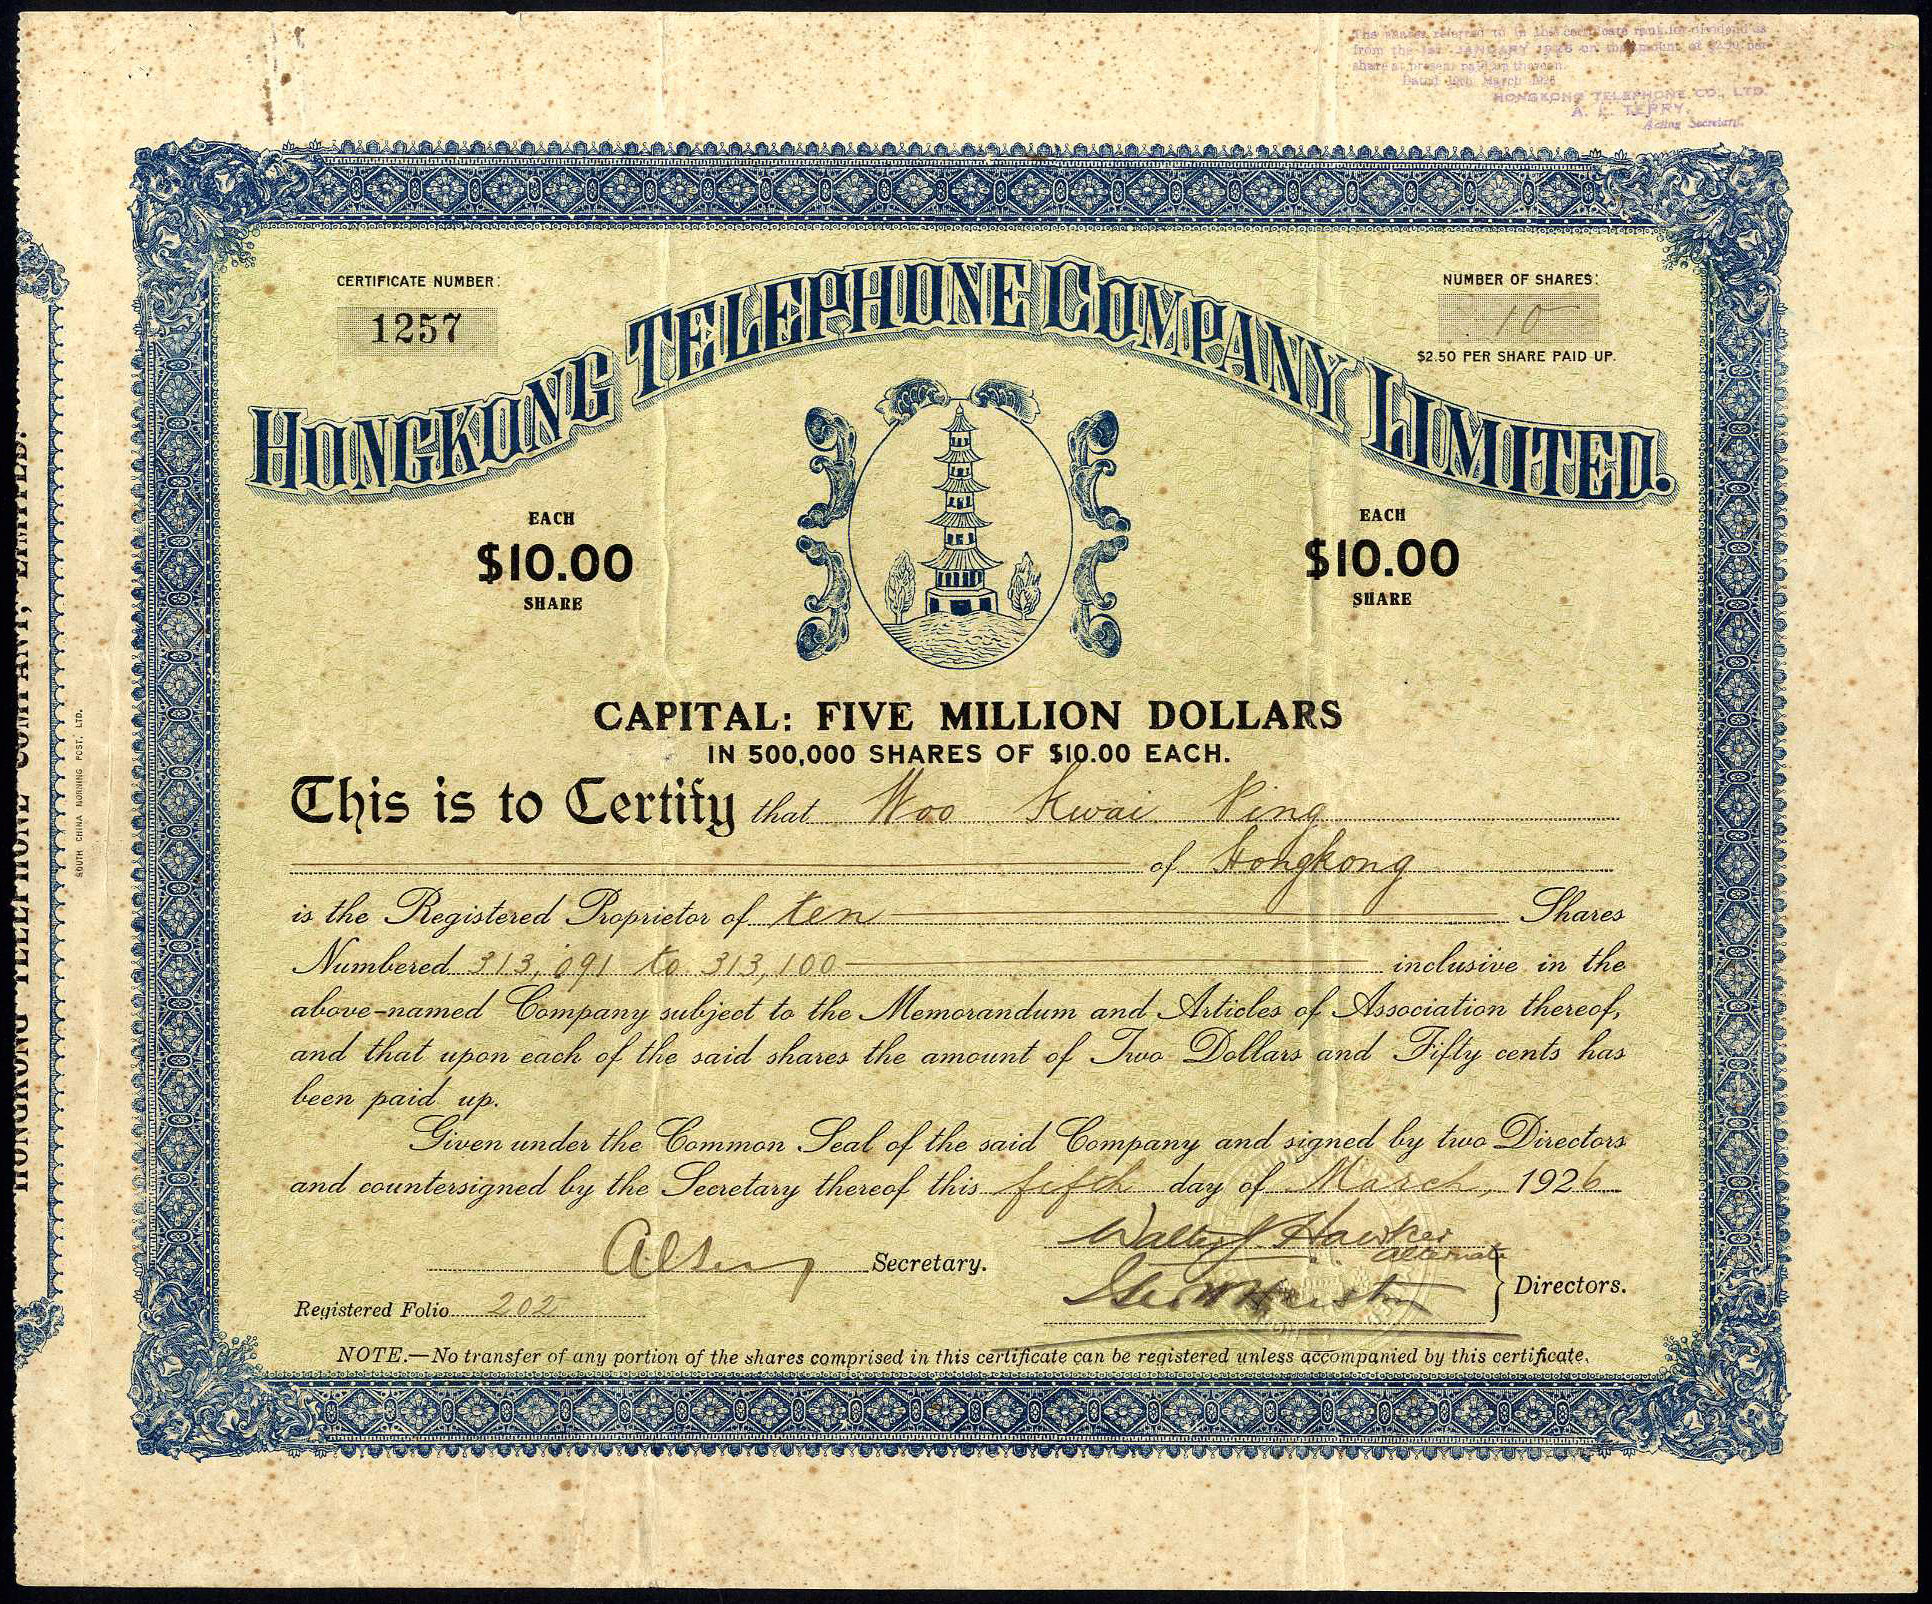 The shares referred to in this certificate rank for dividend as
from the 1st JANUARY 1926 on the amount of $2.50 per
share at present paid up thereon.
Dated 19th March 1926
HONGKONG TELEPHONE CO., LTD.
A. L. TERRY,
Acting Secretary.
CERTIFICATE NUMBER:
1257
NUMBER OF SHARES:
10
$2.50 PER SHARE PAID UP.
HONGKONG TELEPHONE COMPANY LIMITED.
EACH
$10.00
SHARE
EACH
$10.00
SHARE
CAPITAL: FIVE MILLION DOLLARS
IN 500,000 SHARES OF $10.00 EACH.
This is to Certify that Woo Kwai Ping
of Hongkong
is the Registered Proprietor of ten Shares
Numbered 313,091 to 313,100 inclusive in the
above-named Company subject to the Memorandum and Articles of Association thereof,
and that upon each of the said shares the amount of Two Dollars and Fifty cents has
been paid up.
Given under the Common Seal of the said Company and signed by two Directors
and countersigned by the Secretary thereof this fifth day of March, 1926
Secretary.
Walter J Hawker
alternate
Directors.
Registered Folio 202
NOTE.—No transfer of any portion of the shares comprised in this certificate can be registered unless accompanied by this certificate.
HONGKONG TELEPHONE COMPANY, LIMITED.
SOUTH CHINA MORNING POST, LTD.